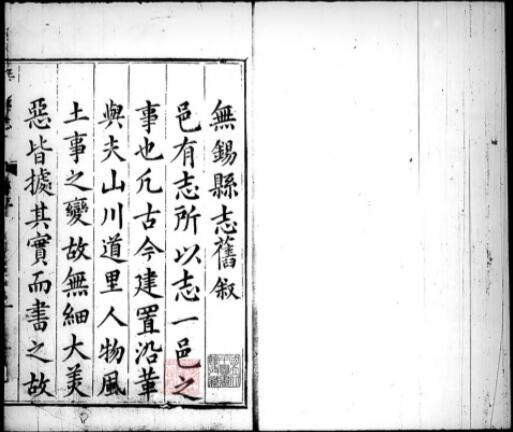 無錫縣志舊叙
邑有志所以志一邑之
事也凡古今建置沿革
與夫山川道里人物風
土事之變故無細大美
惡皆據其實而書之故